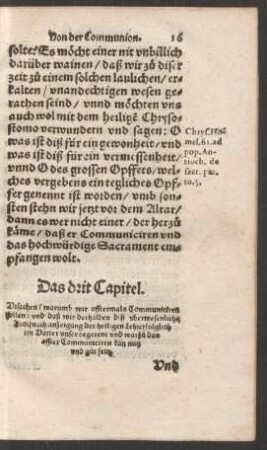 Von der Communion. 16
solte? Es möcht einer nit vnbillich
darüber wainen / daß wir zů diser
zeit zů einem solchen laulichen / er-
kalten / vnandechtigen wesen ge-
rathen seind / vnnd möchten vns
auch wol mit dem heiligē Chryso-
stomo verwundern vnd sagen: O
was ist diß für ein gewonheit / vnd
was ist diß für ein vermessenheit /
vnnd O des grossen Opffers / wel-
ches vergebens ein tegliches Opf-
fer genennt ist worden / vmb son-
sten stehn wir jetzt vor dem Altar /
dann es wer nicht einer / der herzů
käme / daß er Communiciren vnd
das hochwürdige Sacrament em-
pfangen wolt.
Chrys. Ho-
mel. 61. ad
pop. An-
tioch. de
sacr. par.
to. 5.
Das drit Capitel.
Vrsachen / warumb wir offtermals Communiciren
sollen: vnd daß wir derhalben diß vberwesenlich
Brot nach anzeigung der heiligen Lehrer / täglich
im Vatter vnser begeren vnd warzů das
offter Communiciren kan nutz
vnd gůt sein.
Vnd